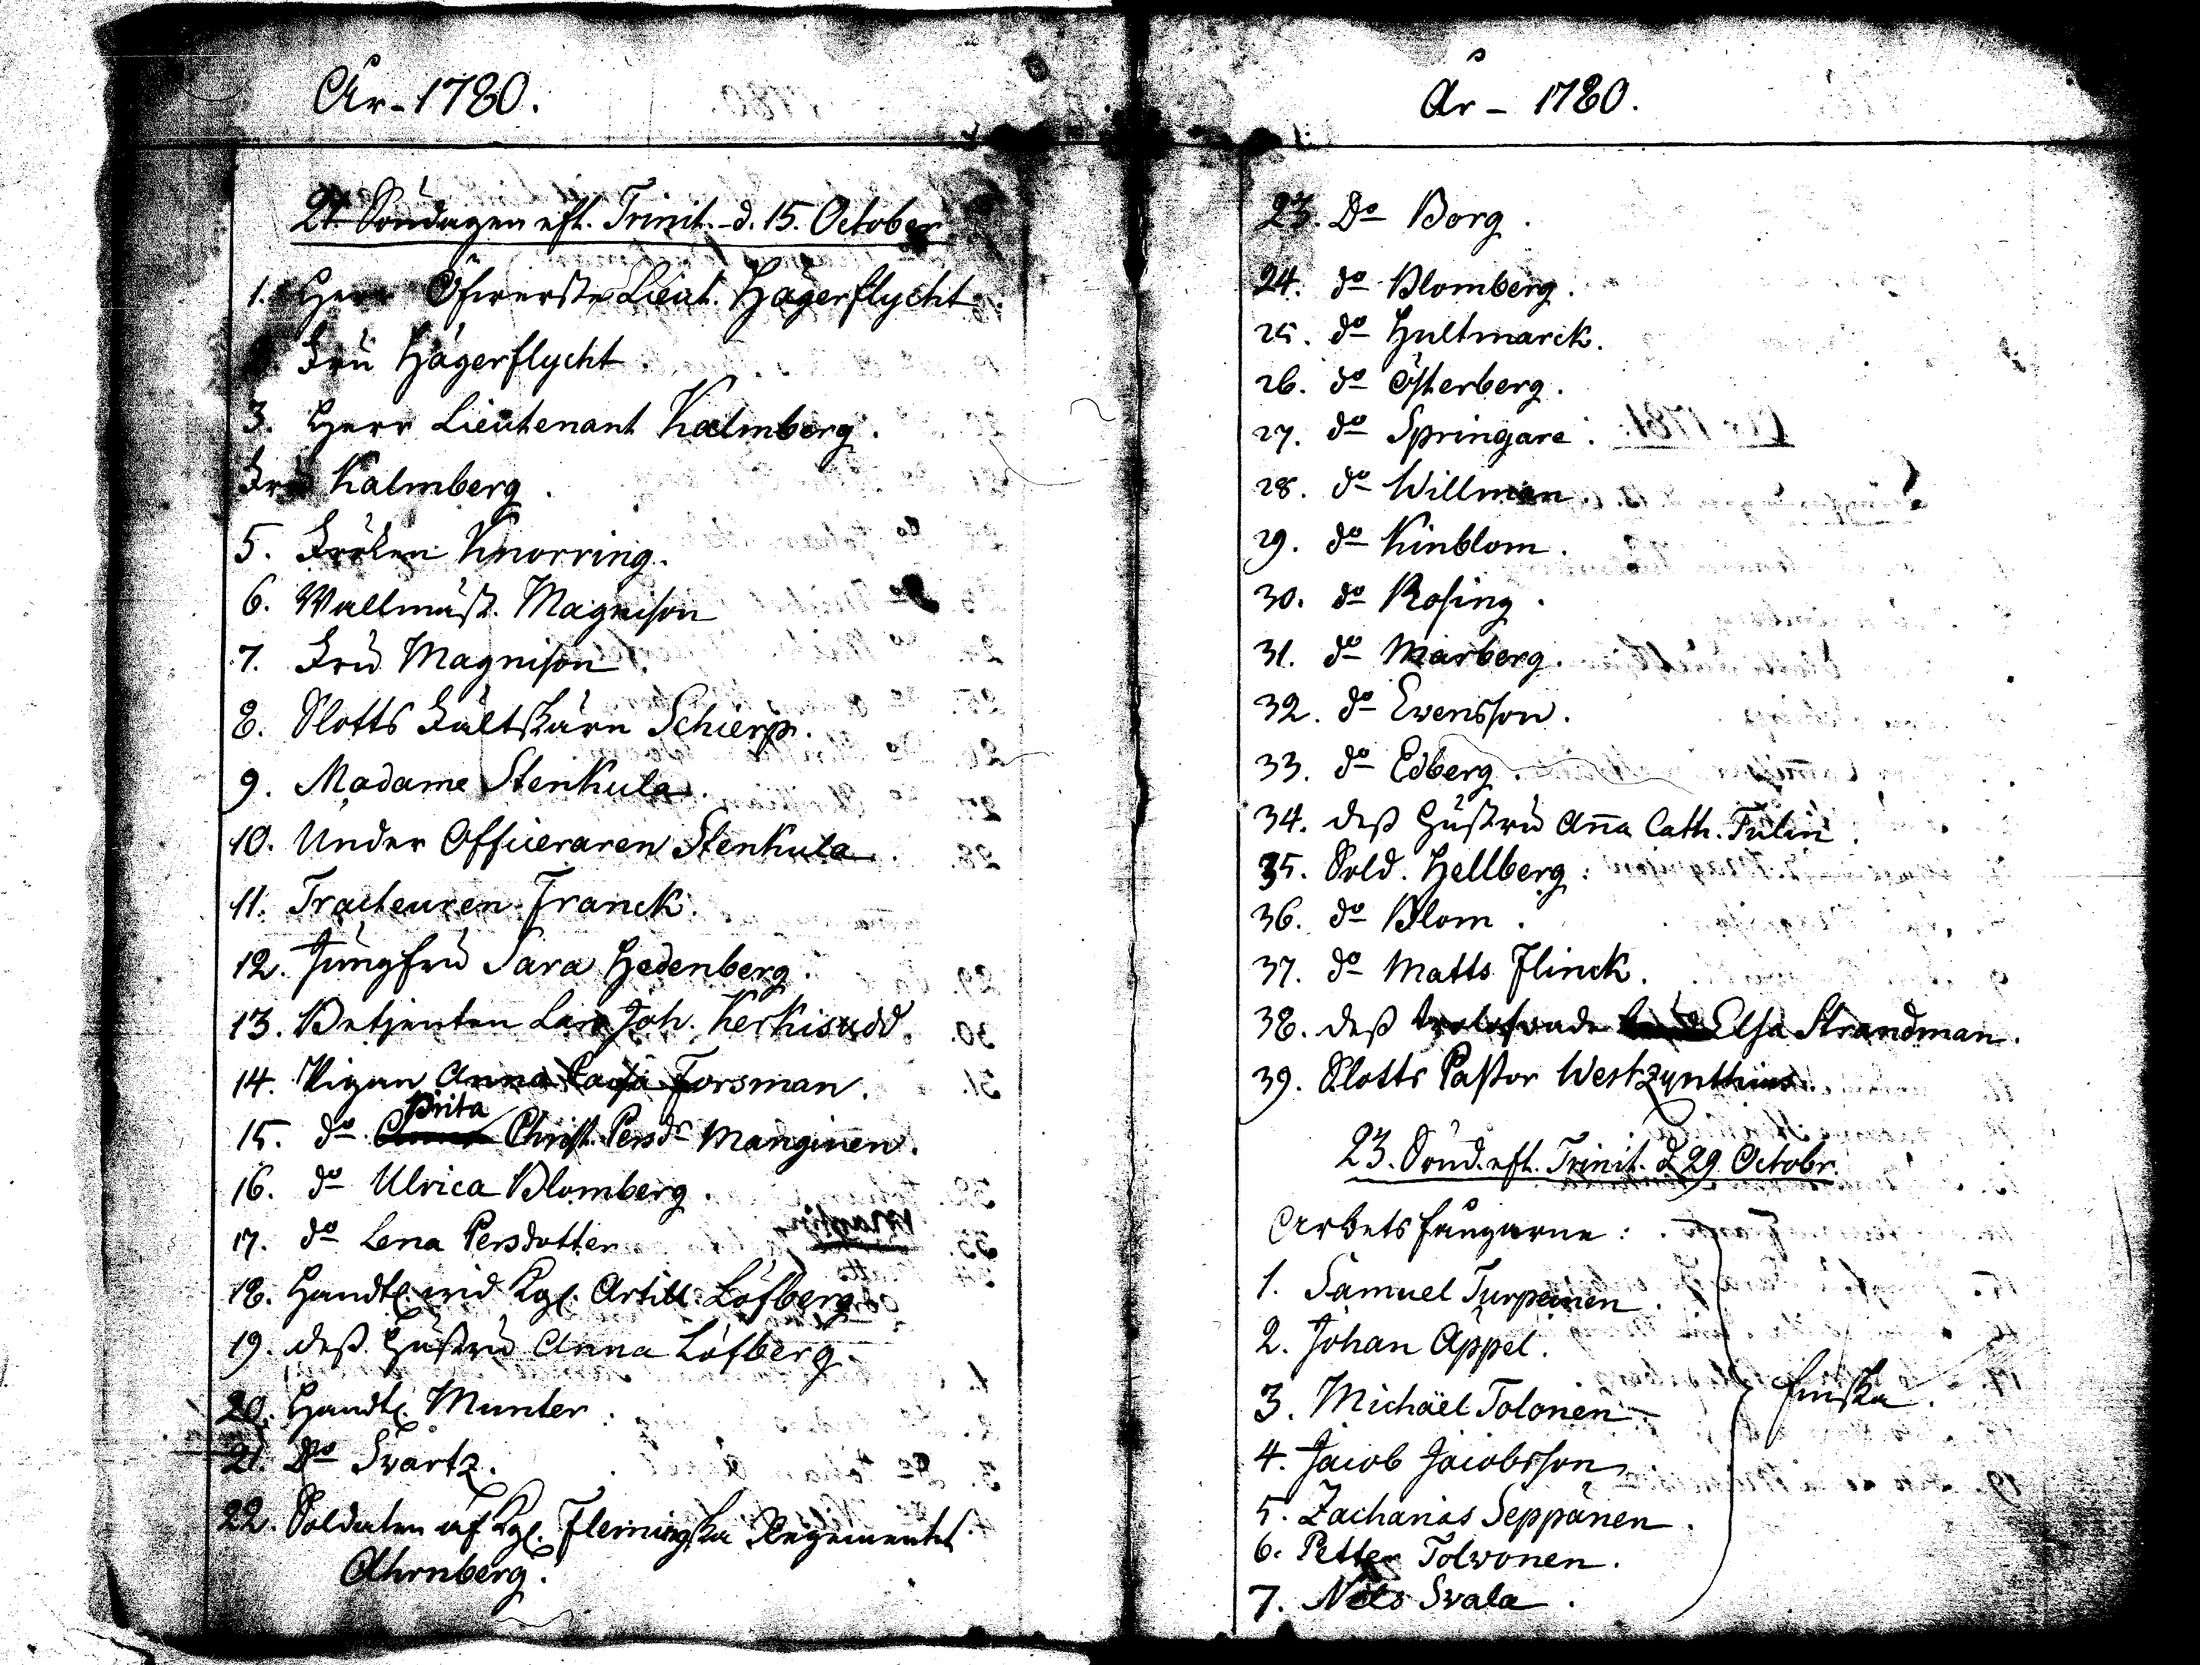 År - 1780.
21. Söndagen eft. Trinit. d. 15. October
1. Herr Öfwerste Lieut. Hägerflycht
Fru Hägerflycht
3. Herr Lieutenant Kalmberg.
Fru Kalmberg.
5. Fröken Knorring.
6. Wallmäst. Magnison
7. Fru Magnison.
8. Slotts Fältskärn Schierp.
9. Madame Stenkula.
10. Under Officeraren Stenkula.
11. Tracteuren Franck.
12. Jungfru Sara Hedenberg.
13. Betjenten Lars Joh. Kerkisudd.
14. Pigan Anna Cajsa Forsman.
15. do Brita Christ. Persdr Manginen.
16. do Ulrica Blomberg.
17. do Lena Persdotter
18. Handtl. wid Kgl. Artill. Löfberg
19. deß Hustru Anna Löfberg.
20. Handtl. Munter.
21. Do Svartz.
22. Soldaten af Kgl. Flemingska Regementet
Ahrnberg.
År - 1780.
23. Do Borg.
24. do Blomberg.
25. do Hultmarck.
26. do Österberg.
27. do Springare.
28. do Willman.
29. do Kinblom.
30. do Rosing.
31. do Marberg.
32. do Evensson.
33. do Edberg.
34. deß Hustru Aña Cath. Tulin.
35. Sold. Hellberg.
36. do Blom.
37. do Matts Flinck.
38. deß trolofvade Elsa Strandman.
39. Slotts Pastor Westzynthius.
23. Sönd. eft. Trinit. d. 29. Octobr.
Arbetsfångarne:
1. Samuel Turpeinen.
2. Johan Appel.
3. Michäel Tolonen
4. Jacob Jacobsson
5. Zacharias Seppänen.
6. Petter Tolwonen.
7. Nils Svala.
finska.